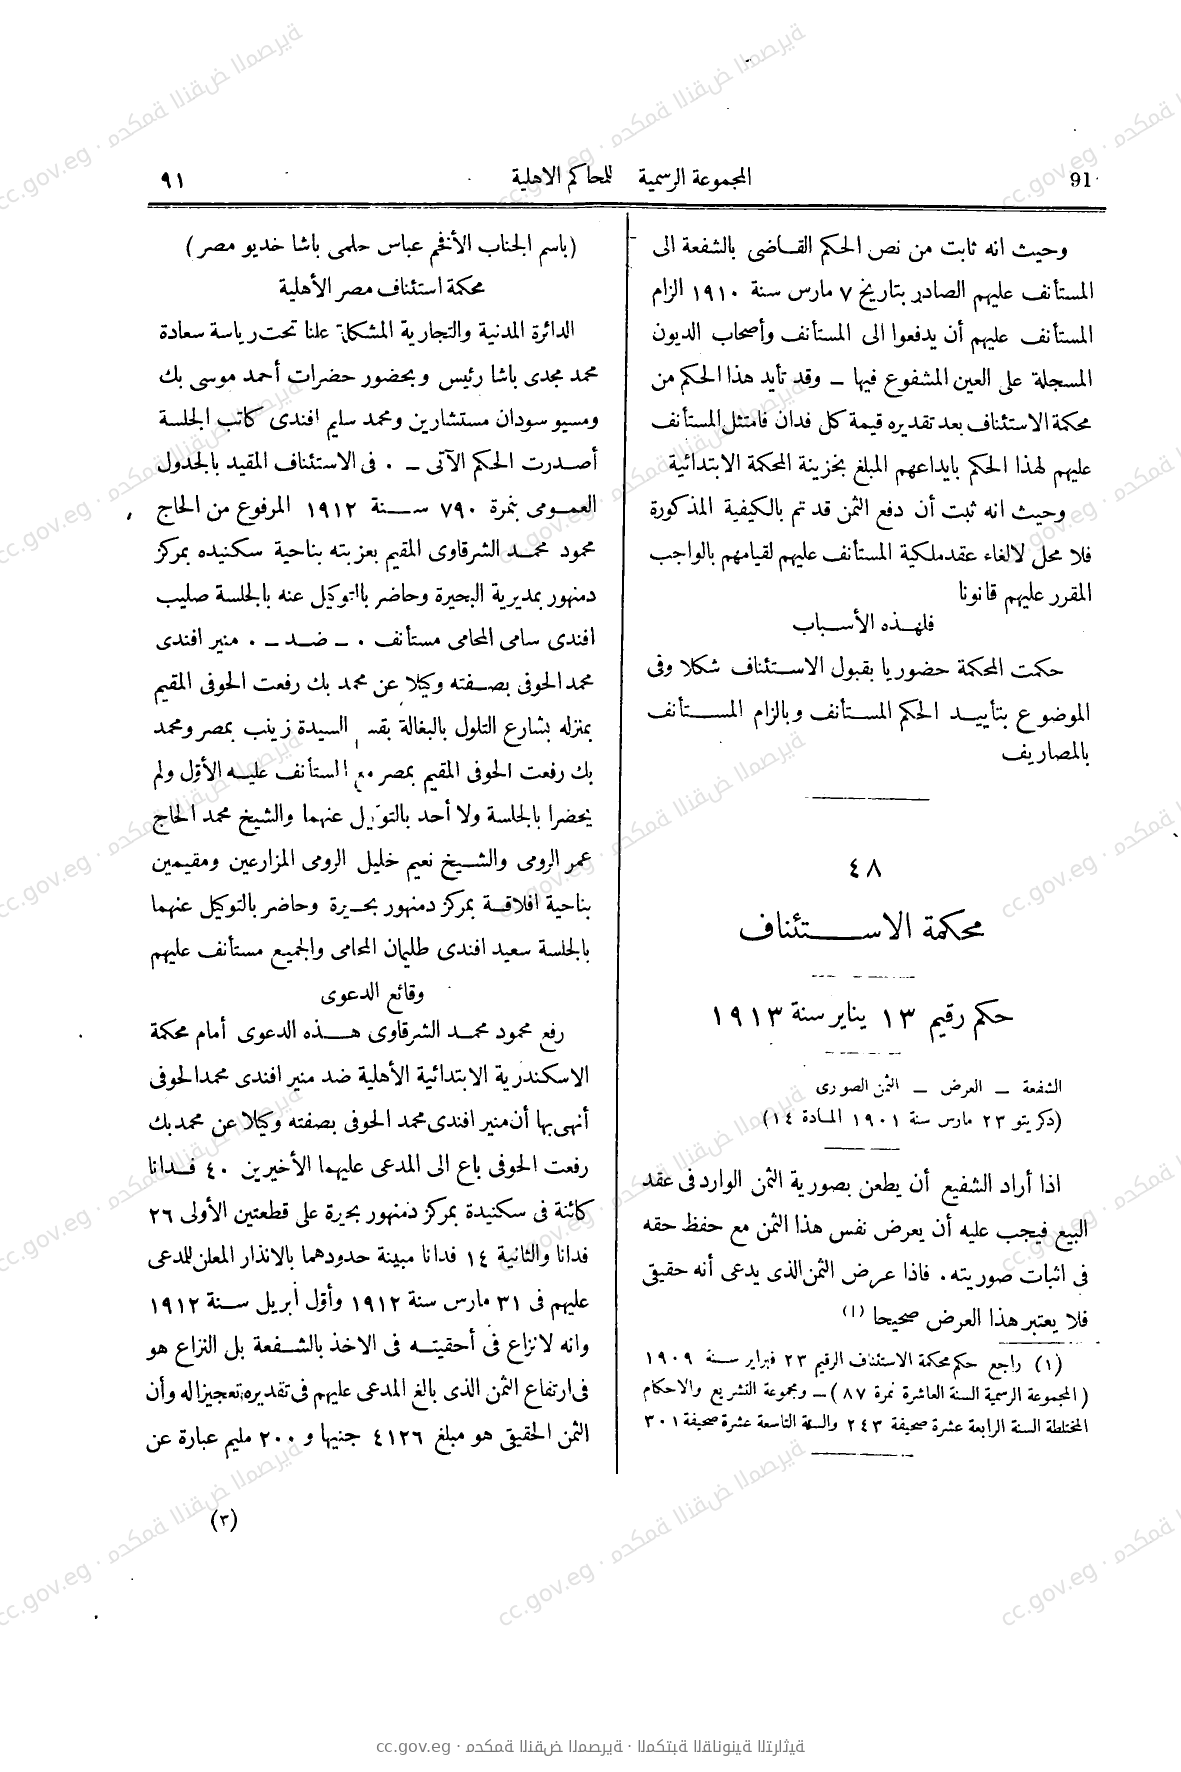 91 المجموعة الرسمية للمحاكم الاهلية ٩١
وحيث انه ثابت من نص الحكم القاضى بالشفعة الى
المستأنف عليهم الصادر بتاريخ ٧ مارس سنة ١٩١٠ الزام
المستأنف عليهم أن يدفعوا الى المستأنف وأصحاب الديون
المسجلة على العين المشفوع فيها – وقد تأيد هذا الحكم من
محكمة الاستئناف بعد تقديره قيمة كل فدان فامتثل المستأنف
عليهم لهذا الحكم بايداعهم المبلغ بخزينة المحكمة الابتدائية
وحيث انه ثبت أن دفع الثمن قد تم بالكيفية المذكورة
فلا محل لالغاء عقد ملكية المستأنف عليهم لقيامهم بالواجب
المقرر عليهم قانونا
فلهذه الأسباب
حكمت المحكمة حضوريا بقبول الاستئناف شكلا وفى
الموضوع بتأييد الحكم المستأنف وبالزام المستأنف
بالمصاريف
٤٨
محكمة الاستئناف
حكم رقيم ١٣ يناير سنة ١٩١٣
الشفعة – العرض – الثمن الصورى
(دكريتو ٢٣ مارس سنة ١٩٠١ المادة ١٤)
اذا أراد الشفيع أن يطعن بصورية الثمن الوارد فى عقد
البيع فيجب عليه أن يعرض نفس هذا الثمن مع حفظ حقه
فى اثبات صوريته. فاذا عرض الثمن الذى يدعى أنه حقيقى
فلا يعتبر هذا العرض صحيحا (١)
(١) راجع حكم محكمة الاستئناف الرقيم ٢٣ فبراير سنة ١٩٠٩
(المجموعة الرسمية السنة العاشرة نمرة ٨٧) – ومجموعة التشريع والاحكام
المختلطة السنة الرابعة عشرة صحيفة ٢٤٣ والسنة التاسعة عشرة صحيفة ٣٠١
(باسم الجناب الأفخم عباس حلمى باشا خديو مصر)
محكمة استئناف مصر الأهلية
الدائرة المدنية والتجارية المشكلة علنا تحت رياسة سعادة
محمد مجدى باشا رئيس وبحضور حضرات أحمد موسى بك
ومسيو سودان مستشارين ومحمد سليم افندى كاتب الجلسة
أصدرت الحكم الآتى – . فى الاستئناف المقيد بالجدول
العمومى بنمرة ٧٩٠ سنة ١٩١٢ المرفوع من الحاج
محمود محمد الشرقاوى المقيم بعزبته بناحية سكنيده بمركز
دمنهور بمديرية البحيرة وحاضر بالتوكيل عنه بالجلسة صليب
افندى سامى المحامى مستأنف . – ضد – . منير افندى
محمد الحوفى بصفته وكيلا عن محمد بك رفعت الحوفى المقيم
بمنزله بشارع التلول بالبغالة بقسم السيدة زينب بمصر ومحمد
بك رفعت الحوفى المقيم بمصر مع المستأنف عليه الأول ولم
يحضرا بالجلسة ولا أحد بالتوكيل عنهما والشيخ محمد الحاج
عمر الرومى والشيخ نعيم خليل الرومى المزارعين ومقيمين
بناحية افلاقة بمركز دمنهور بحيرة وحاضر بالتوكيل عنهما
بالجلسة سعيد افندى طليمان المحامى والجميع مستأنف عليهم
وقائع الدعوى
رفع محمود محمد الشرقاوى هذه الدعوى أمام محكمة
الاسكندرية الابتدائية الأهلية ضد منير افندى محمد الحوفى
أنهى بها أن منير افندى محمد الحوفى بصفته وكيلا عن محمد بك
رفعت الحوفى باع الى المدعى عليهما الأخيرين ٤٠ فدانا
كائنة فى سكنيدة بمركز دمنهور بحيرة على قطعتين الأولى ٢٦
فدانا والثانية ١٤ فدانا مبينة حدودهما بالانذار المعلن للمدعى
عليهم فى ٣١ مارس سنة ١٩١٢ وأول أبريل سنة ١٩١٢
وانه لا نزاع فى أحقيته فى الاخذ بالشفعة بل النزاع هو
فى ارتفاع الثمن الذى بالغ المدعى عليهم فى تقديره تعجيزا له وأن
الثمن الحقيقى هو مبلغ ٤١٢٦ جنيها و ٢٠٠ مليم عبارة عن
(٣)
cc.gov.eg · محكمة النقض المصرية · المكتبة القانونية التراثية